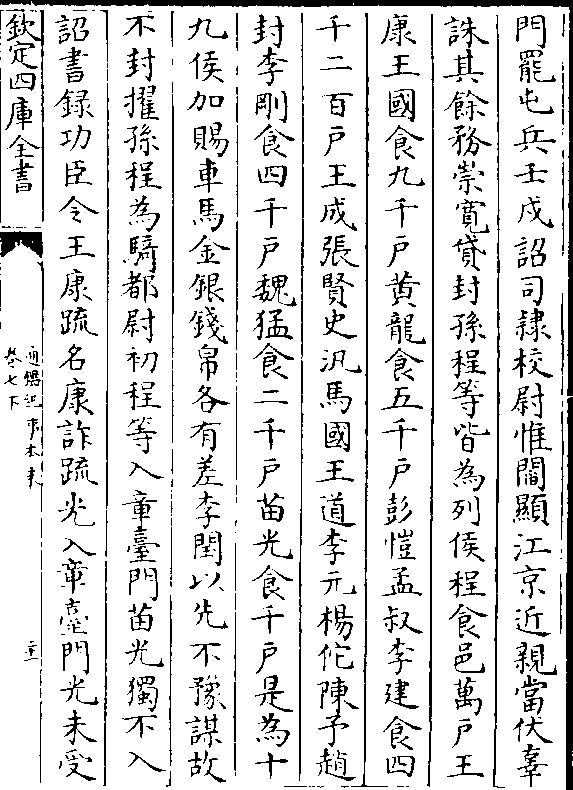 門罷屯兵壬戌詔司隷校尉惟閻顯江京近親當伏辜
誅其餘務崇寛貸封孫程等皆為列侯程食邑萬戸王
康王國食九千戸黄龍食五千戸彭愷孟叔李建食四
千二百戸王成張賢史汎馬國王道李元楊佗陳予趙
封李剛食四千戸魏猛食二千戸苗光食千戸是為十
九侯加賜車馬金銀錢帛各有差李閏以先不豫謀故
不封擢孫程為騎都尉初程等入章臺門苗光獨不入
詔書録功臣令王康疏名康詐疏光入章臺門光未受
欽定四庫全書
通鑑紀事本末
卷七下